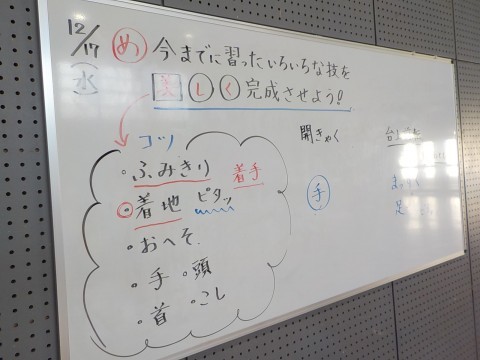 12/17
(水)
め 今までに習ったいろいろな技を
美しく完成させよう!!
コツ
・ふみきり 着手
・着地 ピタッ
・おへそ
・手 ・頭
・首 ・こし
開きゃく
手